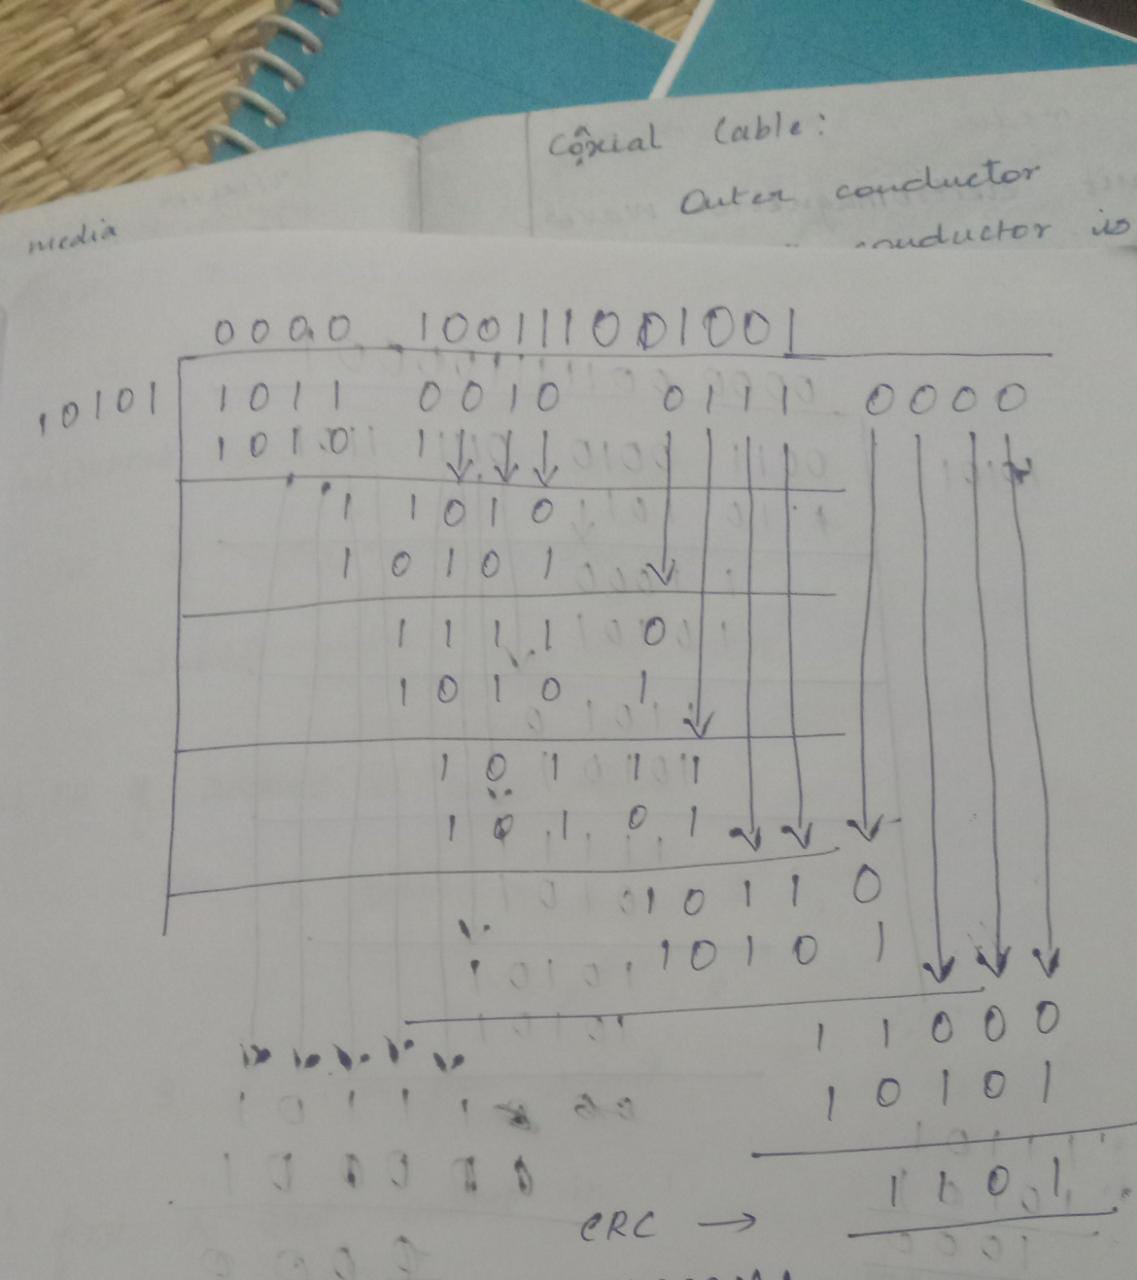 Coaxial Cable:
Outer conductor
media
conductor is
0000 100111001001
10101 1011 0010 0111 0000
1010 1
1 1010
1 0101
1111 0
1010 1
101 11
101 01
10110
10101
11000
10101
1101
CRC →